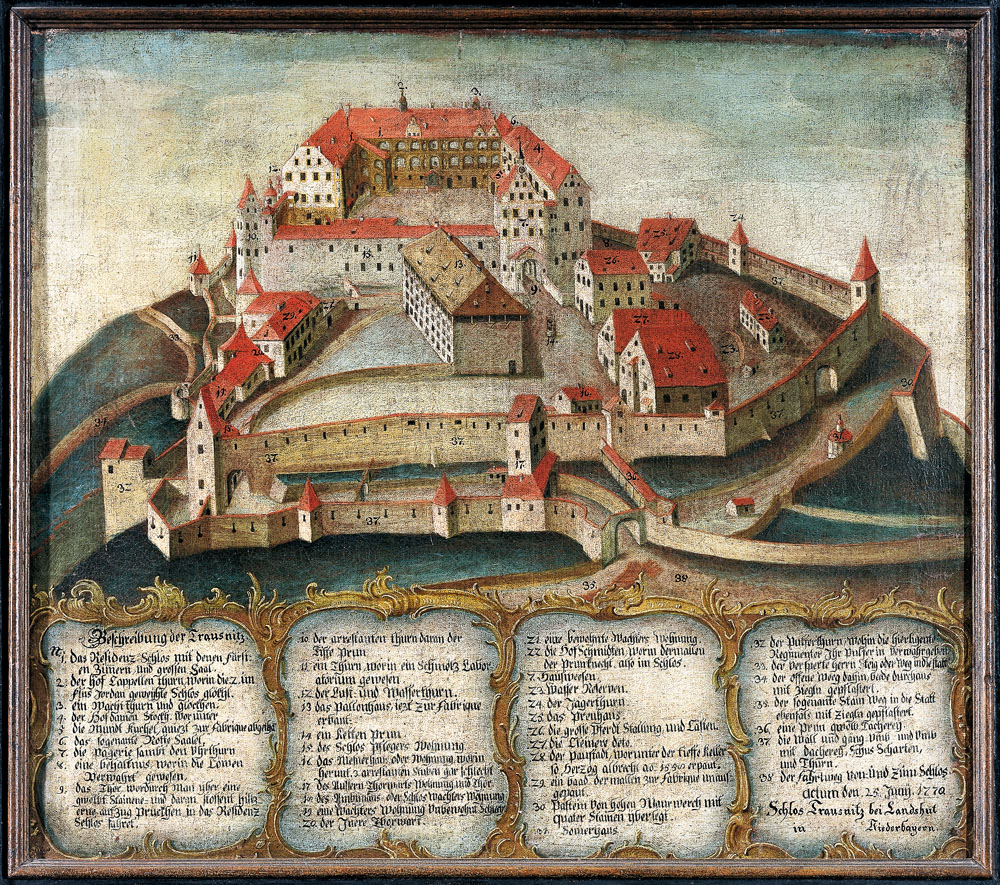 Beschreibung der Trausnitz
N
1. das Residenz Schlos mit denen Fürst-
en Zimern, und grossen Saal.
2. der hof Cappellen thurn, worin die 2. im
flus Jordan geweichte Schlos glökl.
3. ein Wacht thurn und glöcken.
4. der Hof damen Stockh, wor unter
5. die Mundt Kuchel, aniezt zur Fabrique
6. das sogenante Rothe Saalet.
7. die Pagerie samt den Uhrthurn
8. eine behaltnus, worin die Löwen
Verwahrt gewesen.
9. das Thor, wordurch man yber eine
gwölbt Stainene und daran stossent hilz-
erne aufzug Pruckhen in das Residenz
Schlos fahret.
10. der arrestanten thurn daran der
tiffe Prun
11. ein Thurn, worin ein Schmölz Labor-
atorium gewesen
12. der Lust- und Wasserthurn.
13. das Pallonhaus, iezt zur Fabrique
erbaut.
14. ein Ketten Prun
15. des Schlos Pflegers Wohnung
16. das Mesnerhaus, oder Wohnung, worin
herunt. 2. arrestanten Stuben
17. des Aussern Thorwarts Wohnung und Thor
18. des Schlos Wachters Wohnung
19. eine Wachters Wohnung
20. der Inere Thorwart.
21. eine bewohnte Wachters Wohnung
22. die Hof Schmidten, worin dermallen
der Prunknecht, also im Schlos.
Hauswesen.
23. Wasser Reserven.
24. der Jägerthurn
25. das Preuhaus
26. die grosse Pferdt Stallung, und Kästen.
27. die Clienere deto.
28. der Paustadl, worunter der tieffe Keller
so Herzog albrecht ao. 1550 erpaut.
29. ein baad. dermallen zur Fabrique
gepaut.
30. Pastein von hochen Maurwerch mit
quater Stainen yberlegt.
31. Somerhaus
32. der Pulferthurn, Wohin die hierligente
Regimenter Ihr Pulfer in Verwahrgeben.
33. der Versperte herrn Steig oder Weg indie statt
34. der offene Weeg dahin, bede durchaus
mit Ziegln gepflastert.
35. der sogenante Stain Weg in die Statt
ebenfals mit Ziegln gepflastert.
36. eine Prun gwölb Tacherey.
37. die Wall und gäng Umb und Umb
mit dacherey, Schus Scharten,
und Thurn.
38. der fahrtweg von und zum Schlos
actum den 25. Juny. 1770
Schlos Trausnitz bei Landshut
in Niederbayern.